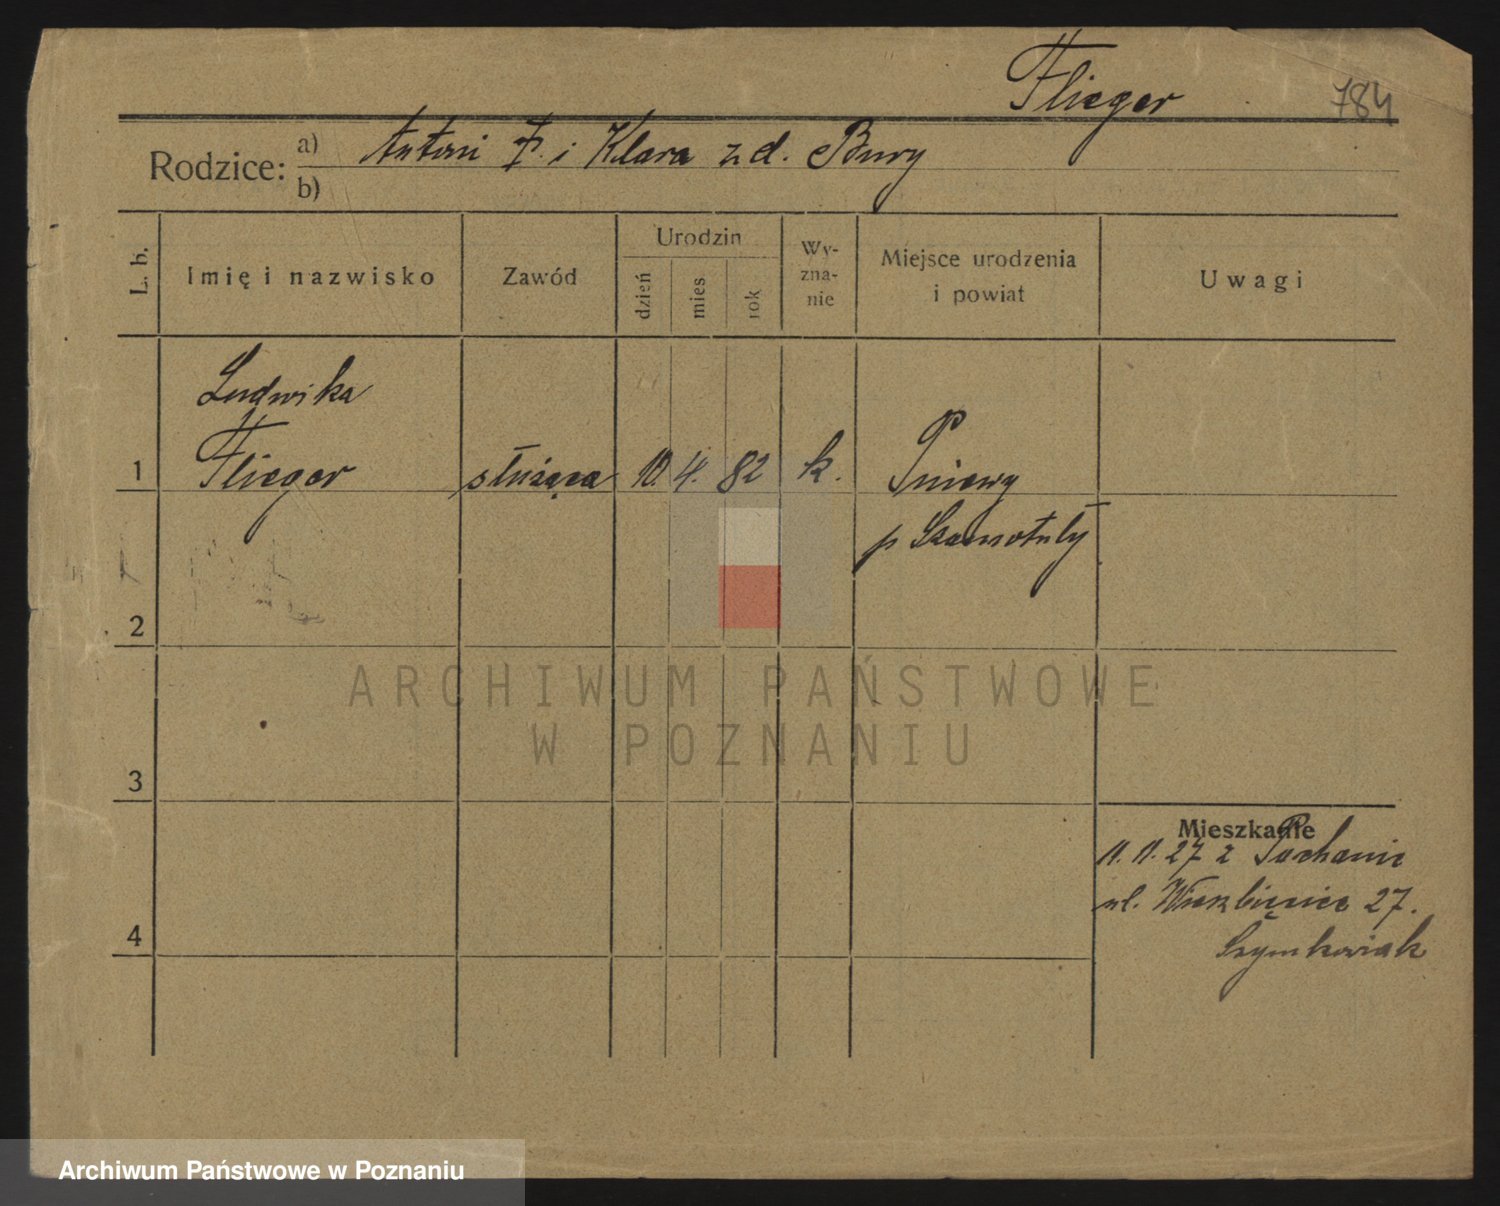 Flieger 784
Rodzice: a) Antoni F. i Klara z d. Bury
b)
L. b. Imię i nazwisko Zawód Urodzin dzień mies rok Wy-zna-nie Miejsce urodzenia i powiat Uwagi
Ludwika
1 Flieger służąca 10. 4. 82 k. Pniewy
p Szamotuły
2
ARCHIWUM PAŃSTWOWE
W POZNANIU
3
Mieszkanie
11. 11. 27 z
ul. Wierzbięcice 27.
4 Szymkowiak
Archiwum Państwowe w Poznaniu